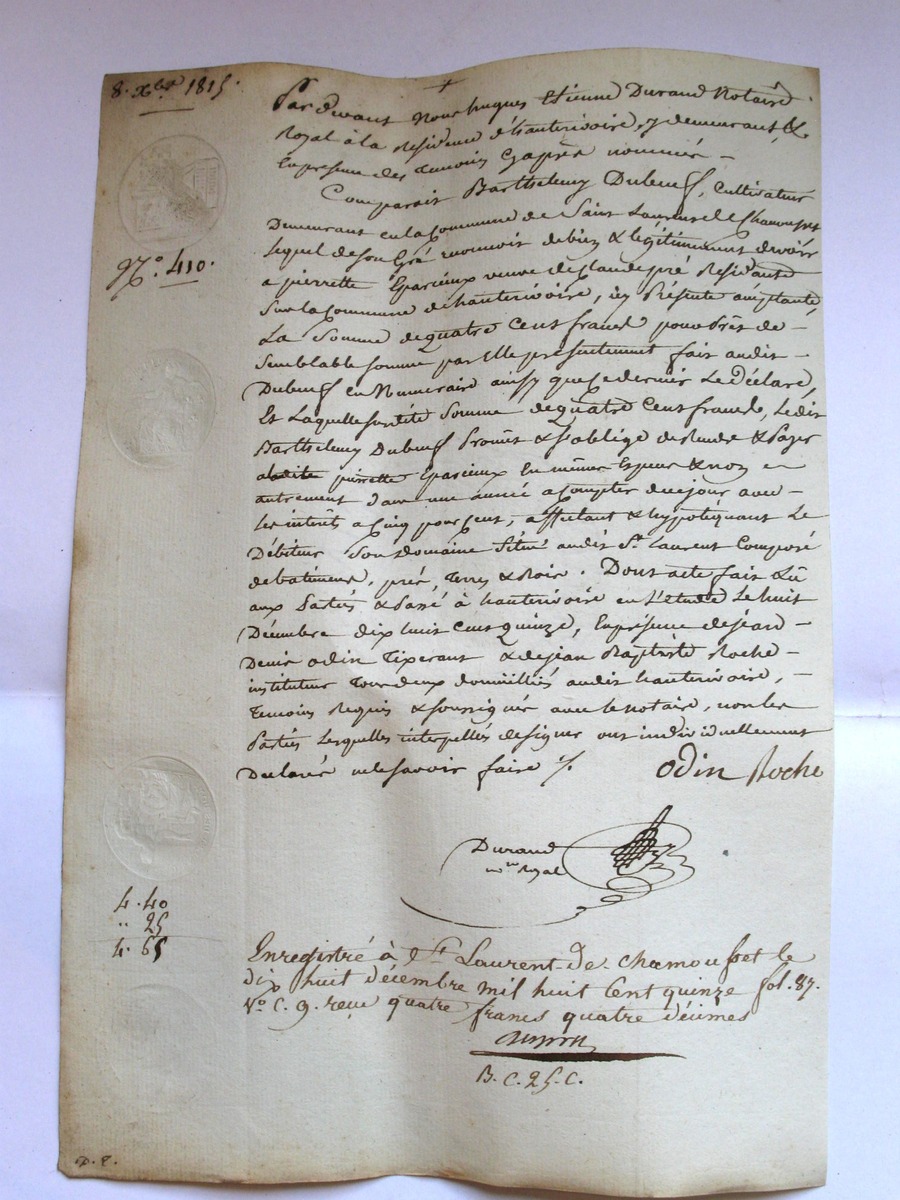 8. Xbre 1815.
Par devant Nous hugues Etienne Durand Notaire
Royal à la Residence d'hauterivoire, y demeurant, &
En presence des temoins cy après nommés –
Comparait Barthelemy Dubeuf, Cultivateur
Demeurant en la Commune de Saint Laurent de Chamousset
Lequel de son Gré reconnoit debien & légitimement devoir
N.° 410.
a pierrette Eparcieux veuve de claude pré Residante
Sur la Commune d'hauterivoire, icy Présente acceptante,
La Somme de quatre Cent francs pour Prêt de –
Semblable somme par Elle presentement fait audit –
Dubeuf en Numeraire ainsy que ce dernier Le déclare,
Et Laquelle susdite Somme de quatre Cent francs, Ledit
Barthelemy Dubeuf Promet & s'oblige de Rendre & Payer
a ladite pierrette Eparcieux En mêmes Especes & non
autrement dans une année a compter de ce jour avec –
Les intérêts a Cinq pour Cent, affectant & hypotéquant Le
Débiteur Son domaine Situé audit St. Laurent Composé
de batimens, prés, Terres & Bois. Dont acte fait & Lû
aux Parties & Passé à hauterivoire en L'étude Le huit
Décembre dix huit Cent quinze, En présence de jean –
Denis odin Tixerant & de jean Baptiste Roche –
instituteur Tous deux domiciliés audit hauterivoire, –
Temoins Requis & soussignés avec le notaire, non les
Parties Lesquelles interpellés de signer ont individuellement
Declarés ne le savoir faire ./.
odin Roche
Durand
nre Royal
4. 40
" 25
4. 65
Enregistré à St. Laurent-de-chamousset le
dix huit décembre mil huit Cent quinze fol. 87.
Vo. C. 9. reçu quatre francs quatre décimes
B. C. 25. C.